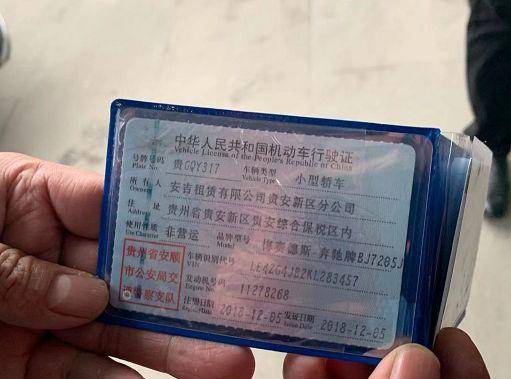 中华人民共和国机动车行驶证
Vehicle License of the People's Republic of China
号牌号码 贵GQY317 车辆类型 小型轿车
Plate No. Vehicle Type
所有人 安吉租赁有限公司贵安新区分公司
Owner
住址 贵州省贵安新区贵安综合保税区内
Address
使用性质 非营运 品牌型号 梅赛德斯-奔驰牌BJ7205J
Use Character Model
贵州省安顺
市公安局交
通警察支队
车辆识别代号 LE4ZG4JB2KL283457
VIN
发动机号码 11278268
Engine No.
注册日期 2018-12-05 发证日期 2018-12-05
Register Date Issue Date